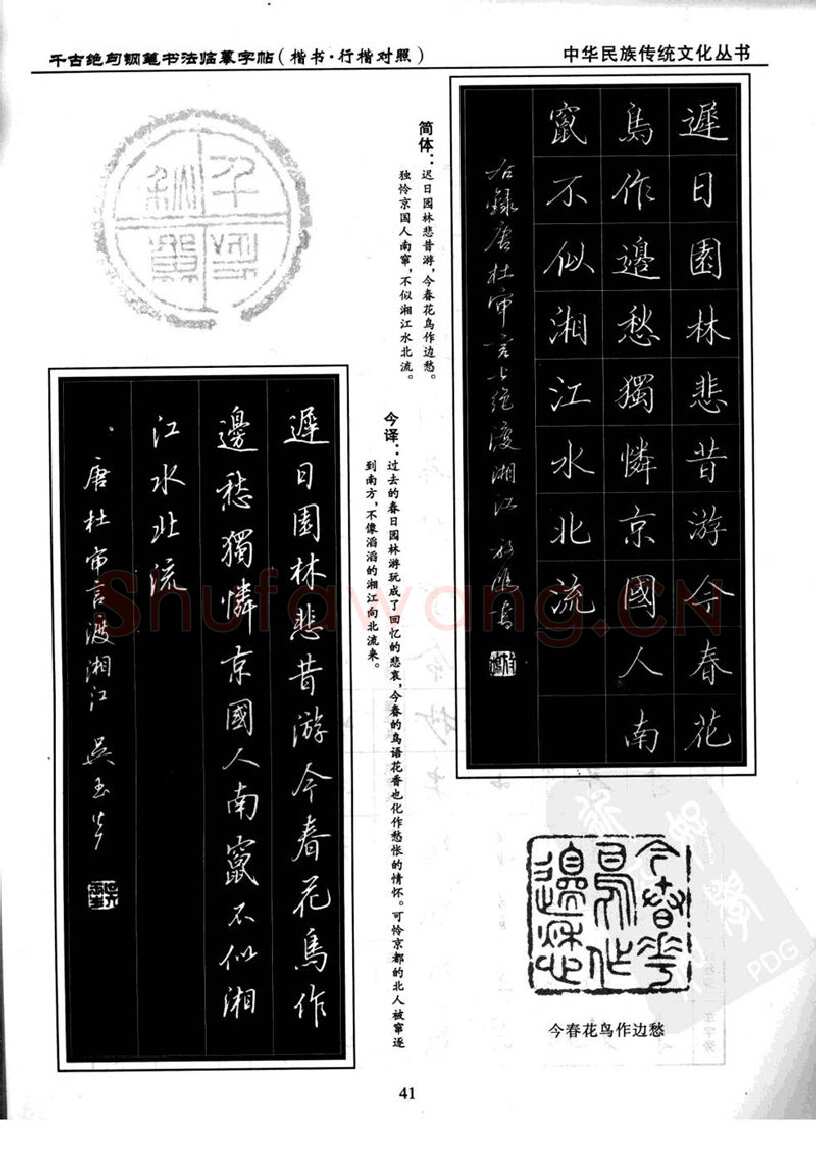 千古绝句钢笔书法临摹字帖(楷书·行楷对照)
中华民族传统文化丛书
遲日園林悲昔游今春花
鳥作邊愁獨憐京國人南
竄不似湘江水北流
右錄唐杜审言七绝渡湘江
简体:迟日园林悲昔游,今春花鸟作边愁。
独怜京国人南窜,不似湘江水北流。
今译:过去的春日园林游玩成了回忆的悲哀,今春的鸟语花香也化作愁怅的情怀。可怜京都的北人被窜逐
到南方,不像滔滔的湘江向北流来。
遲日園林悲昔游今春花鳥作
邊愁獨憐京國人南竄不似湘
江水北流
唐杜审言渡湘江 吴玉生
今春花
鳥作
邊愁
今春花鸟作边愁
41
Shufawang.CN
PDG